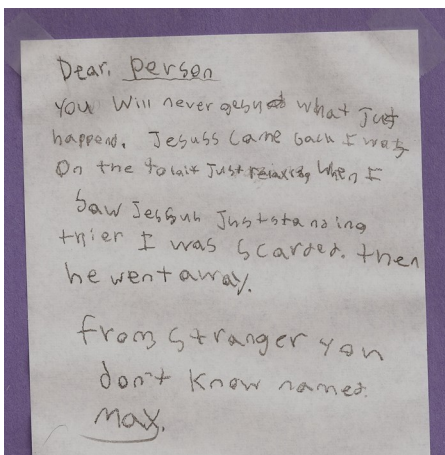 Dear, person
You Will never gesust what Just
happend. Jesuss Came back I was
On the tolait Just relaxing When I
Saw Jessuh Just standing
thier I was Scarded. then
he went away.
from stranger you
don't know named.
Max.